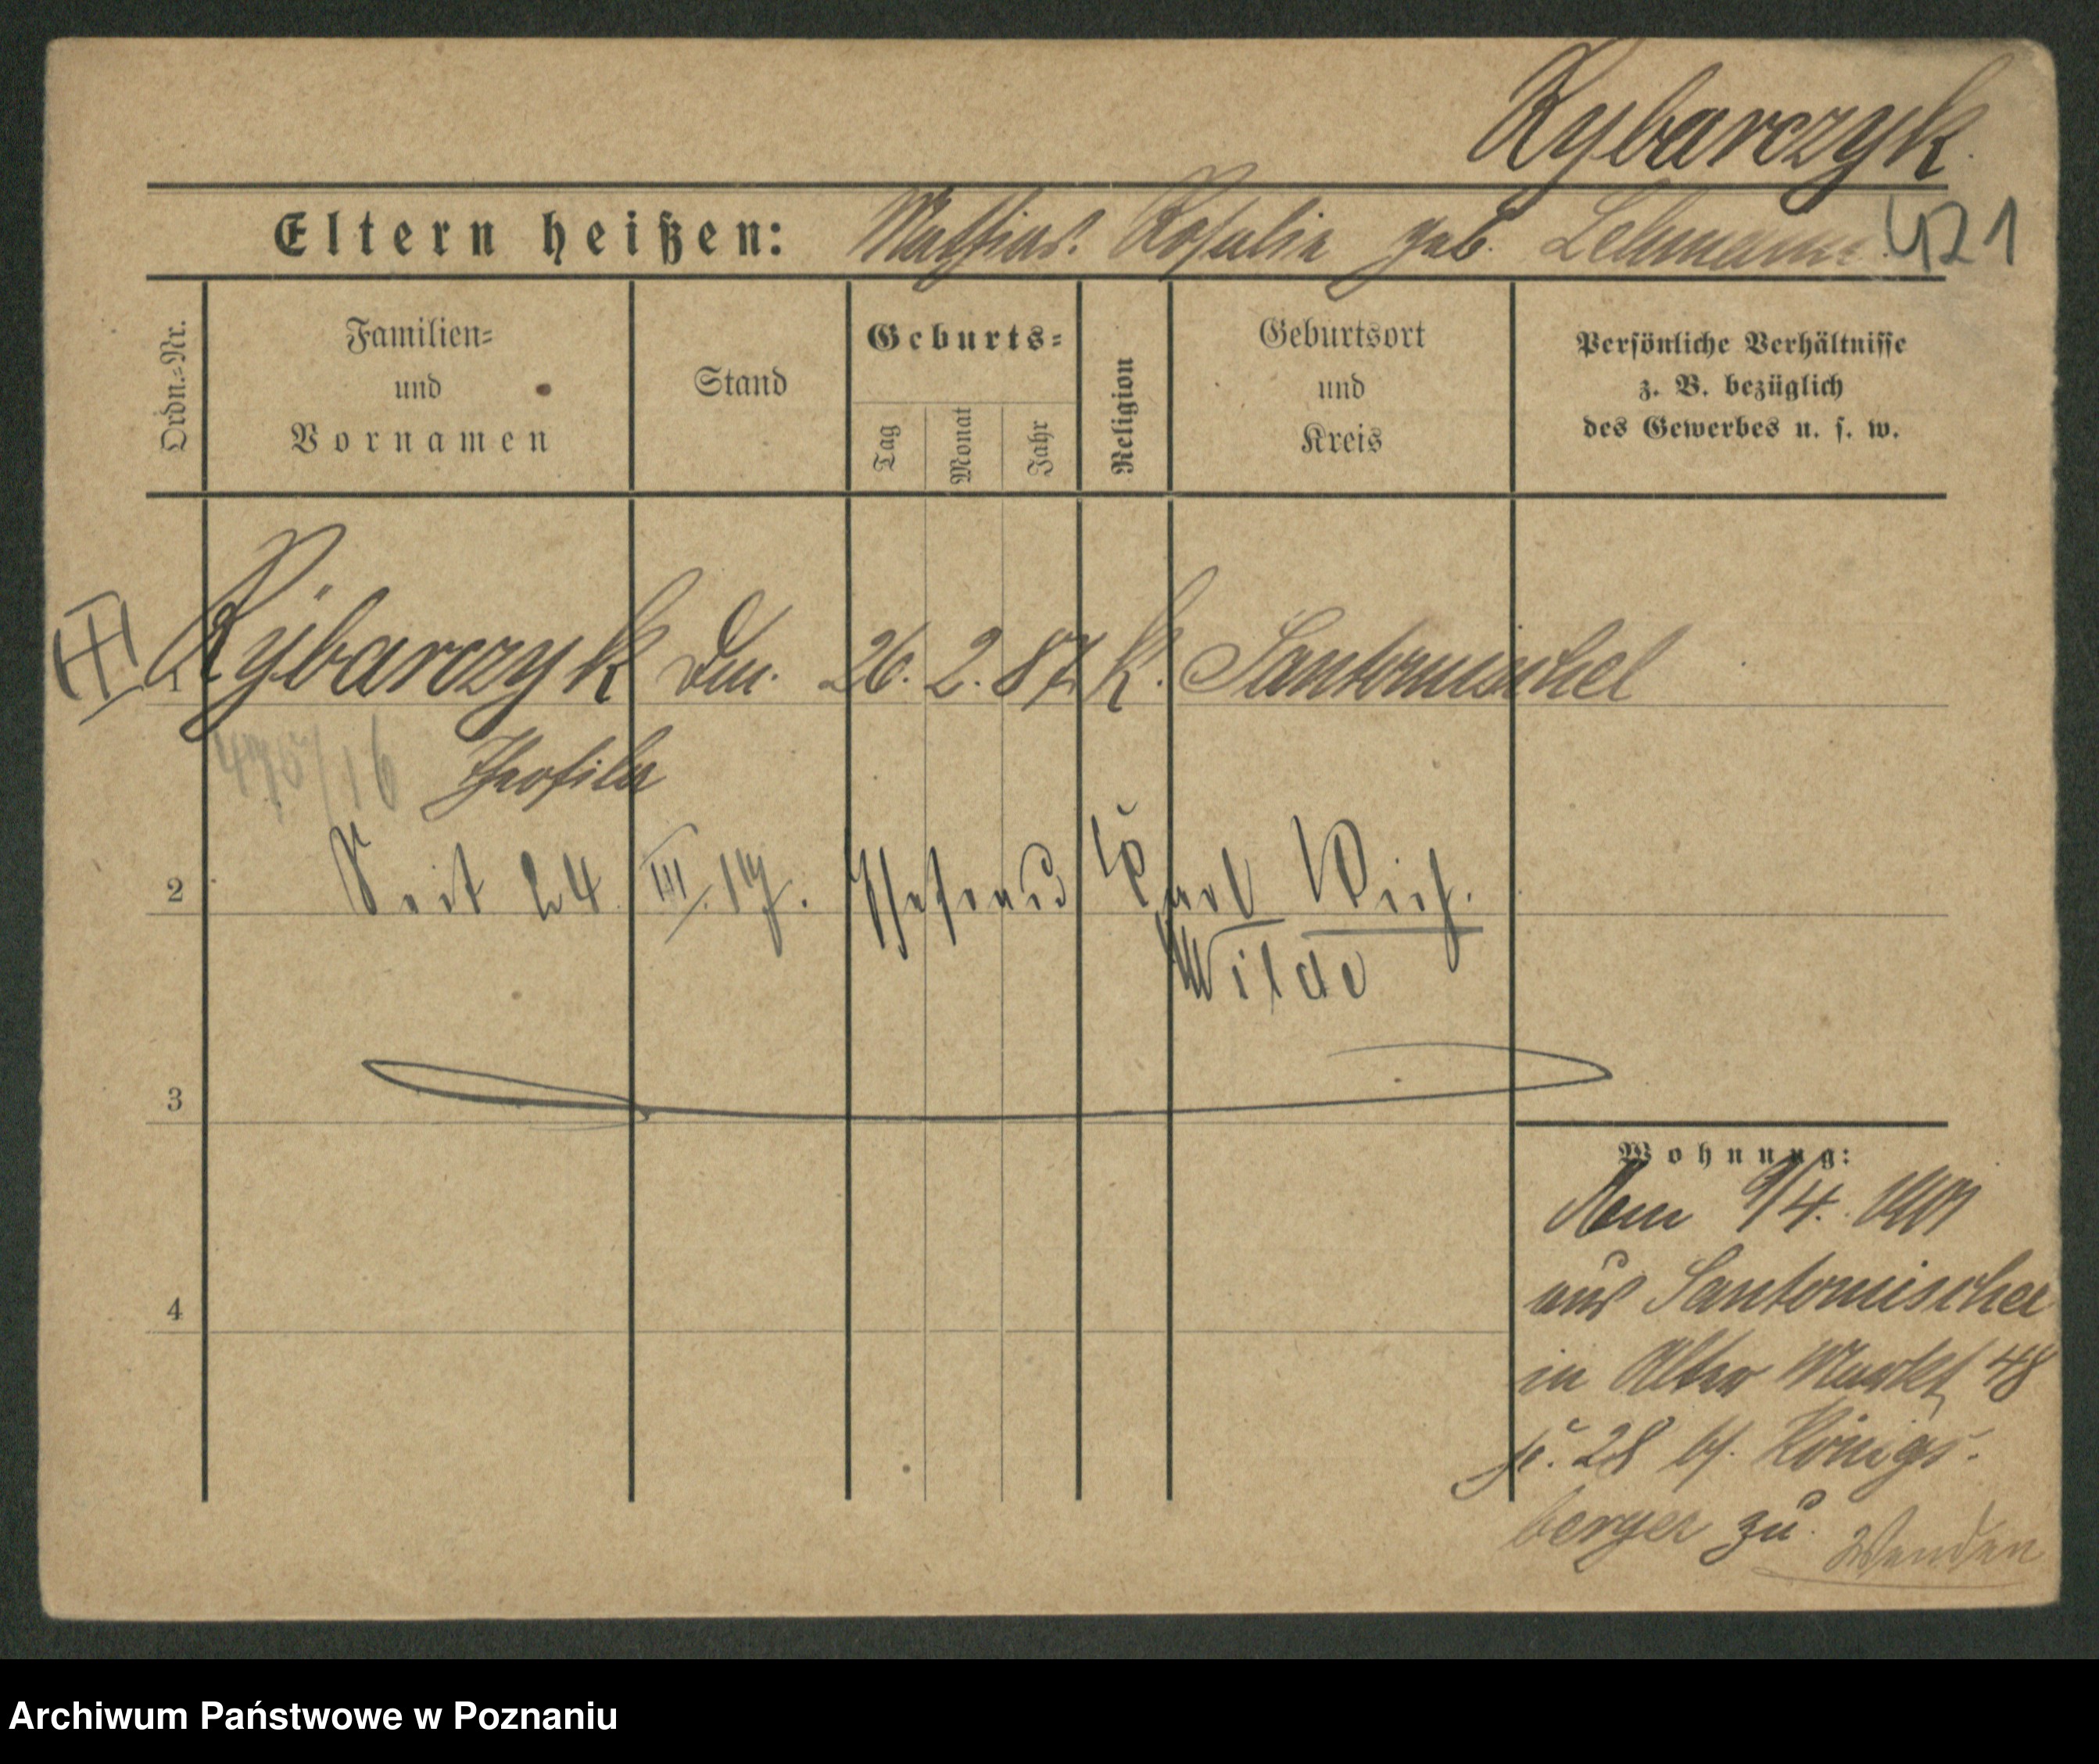 Rybarczyk.
Eltern heißen: Mathias. Rosalie geb. Lehmann.
421
Ordn.-Nr.
Familien- und Vornamen
Stand
Geburts-
Tag
Monat
Jahr
Religion
Geburtsort und Kreis
Persönliche Verhältnisse z. B. bezüglich des Gewerbes u. s. w.
1 Rybarczyk 26. 2. 87 K. Santomischel
475/16 Theofila
2 Seit 24. III. 17. Ehefrau Karl Wilh.
Wilde
3
Wohnung:
Am 9/4. 1901
aus Santomischel
4
in Alter Markt 48
28 bf. Königs-
berger zu.
Wenden